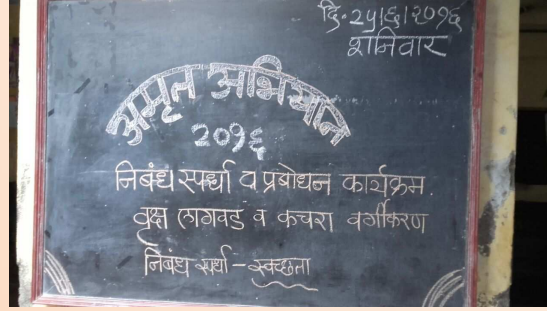 दि. २५।६।२०१६
शनिवार
अमृत अभियान
२०१६
निबंध स्पर्धा व प्रबोधन कार्यक्रम.
वृक्ष लागवड व कचरा वर्गीकरण
निबंध स्पर्धा - स्वच्छता